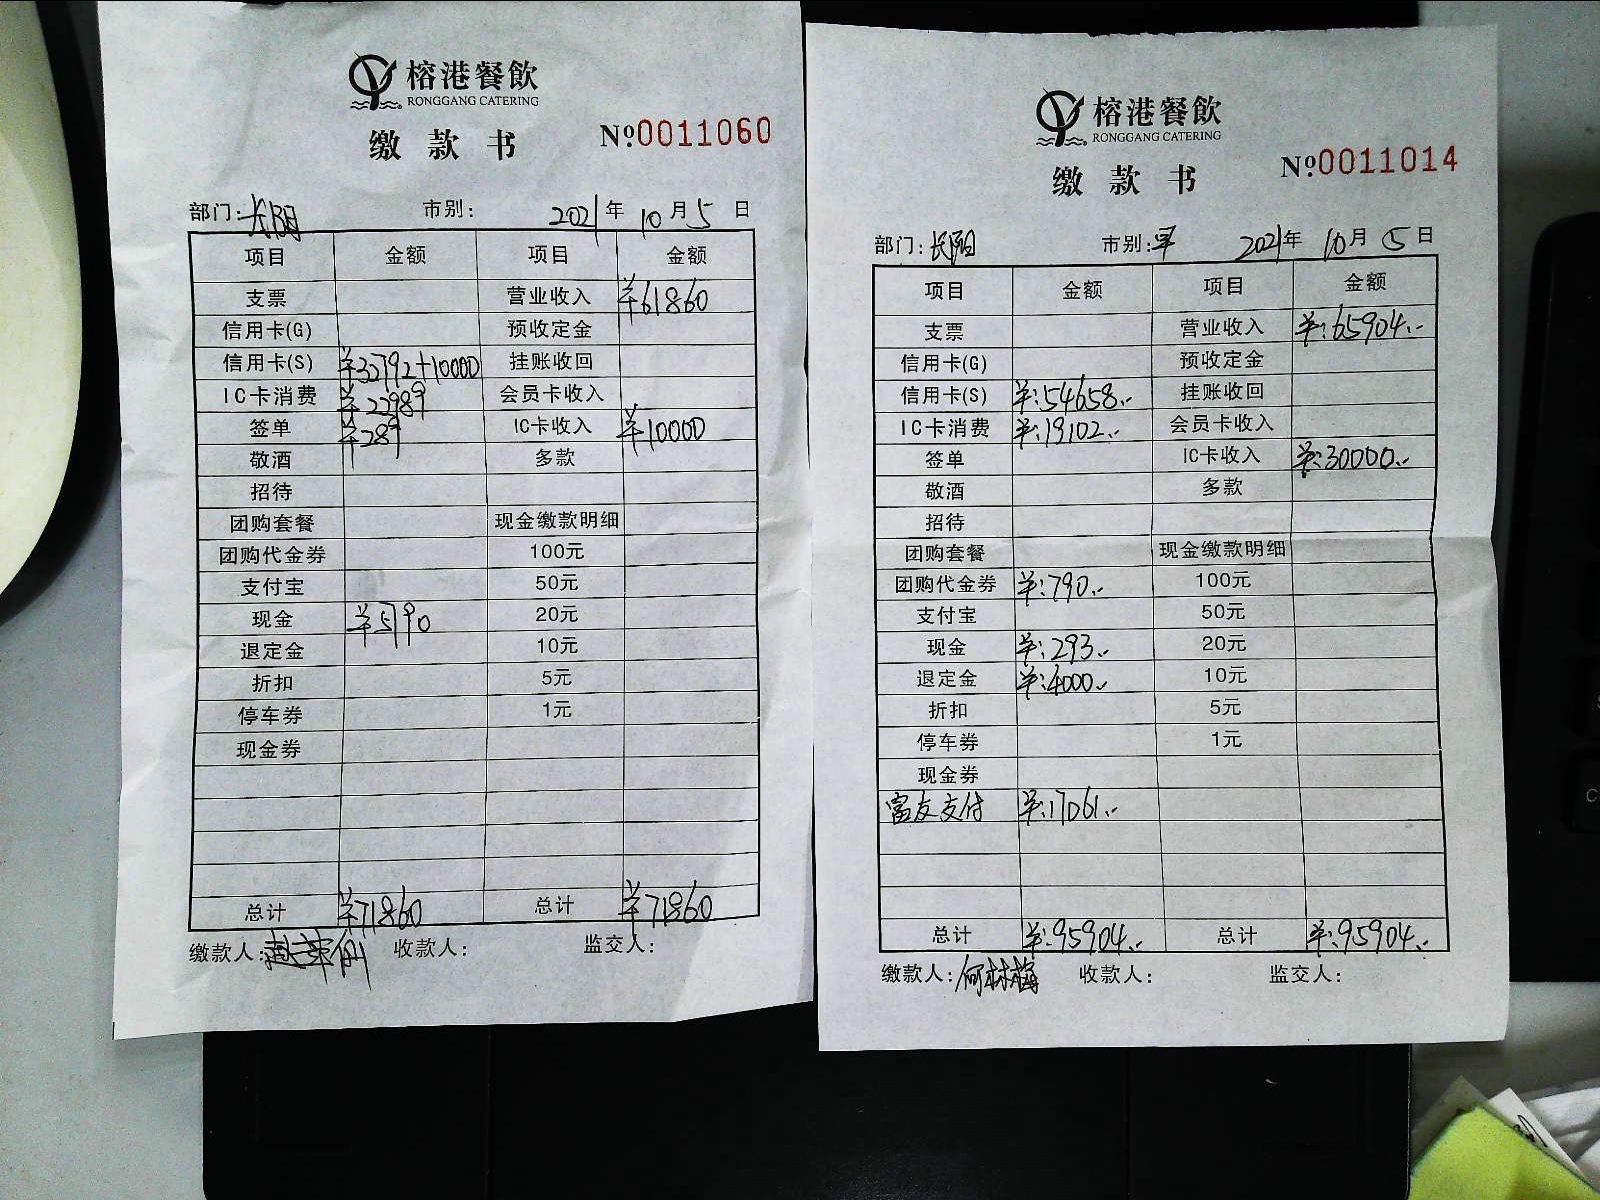 榕港餐飲
RONGGANG CATERING
缴款书 №:0011060
部门:长阳 市别: 2021年10月5日
项目 金额 项目 金额
支票 营业收入 ¥61860
信用卡(G) 预收定金
信用卡(S) ¥32792+10000 挂账收回
IC卡消费 ¥22989 会员卡收入
签单 ¥289 IC卡收入 ¥10000
敬酒 多款
招待
团购套餐 现金缴款明细
团购代金券 100元
支付宝 50元
现金 ¥5790 20元
退定金 10元
折扣 5元
停车券 1元
现金券
总计 ¥71860 总计 ¥71860
缴款人: 收款人: 监交人:
榕港餐飲
RONGGANG CATERING
缴款书 №:0011014
部门:长阳 市别:早 2021年10月5日
项目 金额 项目 金额
支票 营业收入 ¥:65904.-
信用卡(G) 预收定金
信用卡(S) ¥:54658.- 挂账收回
IC卡消费 ¥:19102.- 会员卡收入
签单 IC卡收入 ¥:30000.-
敬酒 多款
招待
团购套餐 现金缴款明细
团购代金券 ¥:790.- 100元
支付宝 50元
现金 ¥:293.- 20元
退定金 ¥:4000.- 10元
折扣 5元
停车券 1元
现金券
富友支付 ¥:17061.-
总计 ¥:95904.- 总计 ¥:95904.-
缴款人:何林梅 收款人: 监交人: